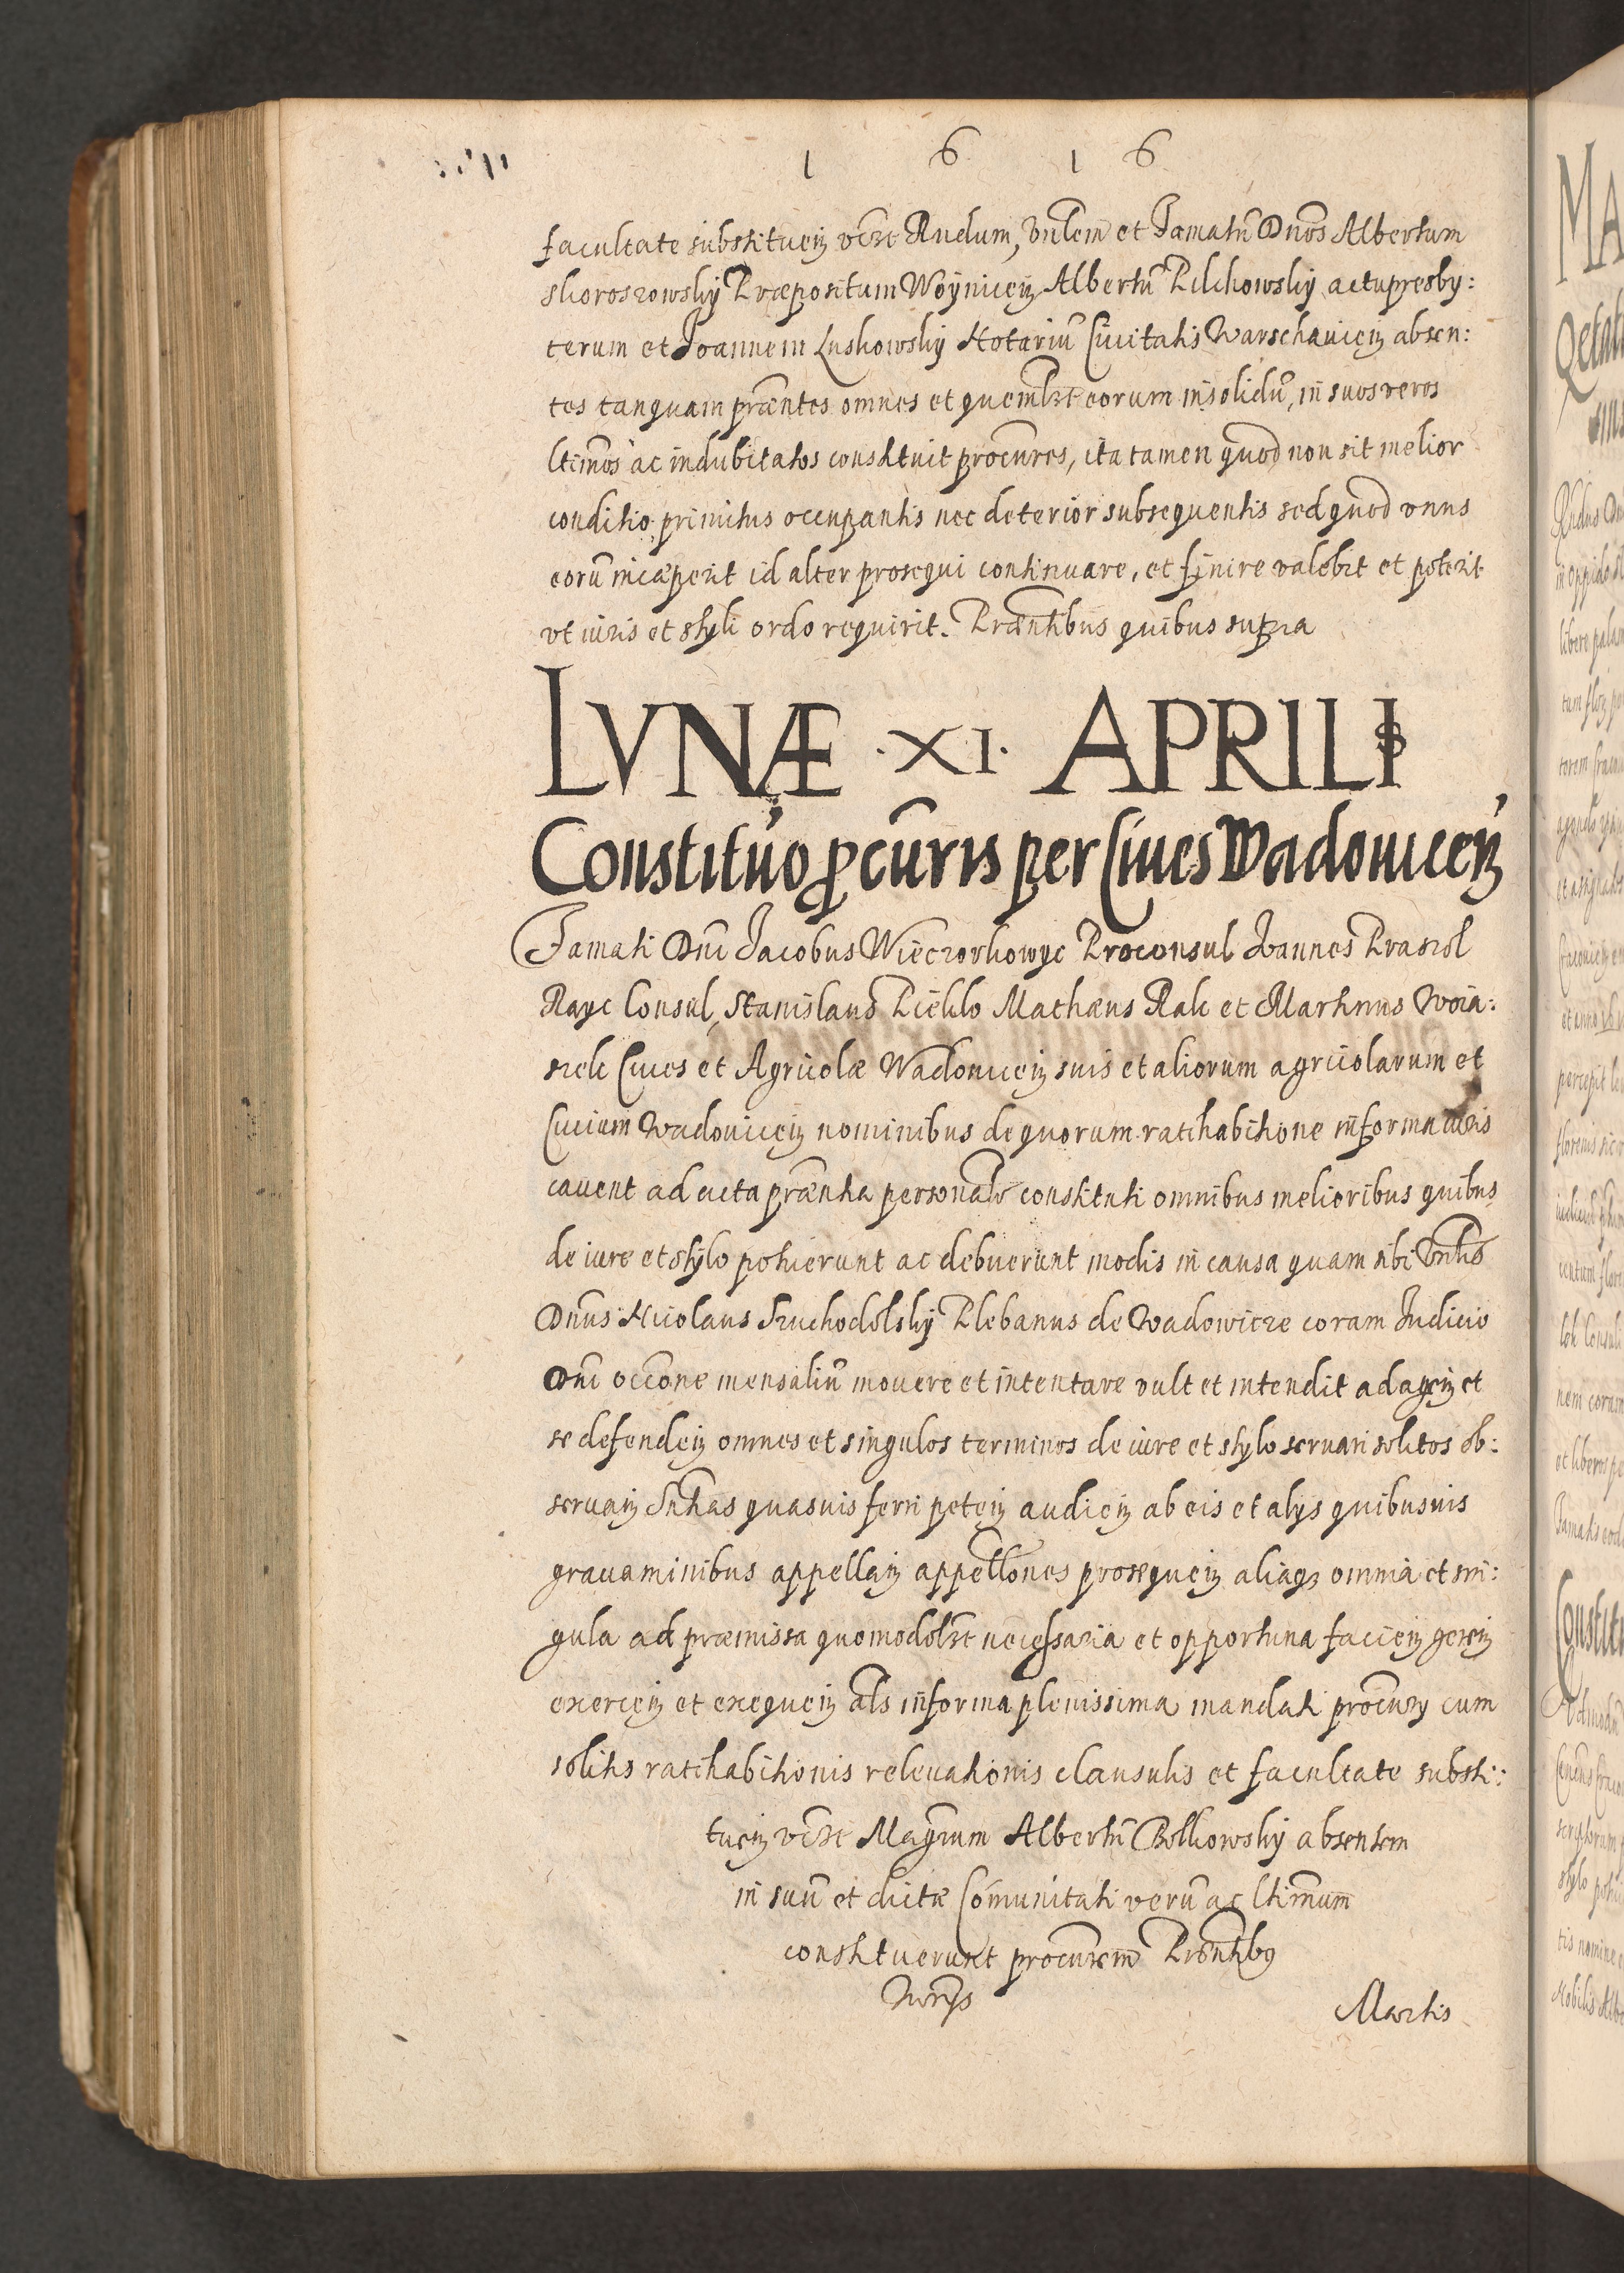 1 6 1 6
facultate substituen̄ vc̄zt Rndum, Vnlem et Famatū Dnōs Albertum
Skoroszowsky Præpositum Woynicen̄ Albertū Pilchowsky actupresby:
terum et Joannem Luskowsky Notariū Ciuitatis Warschauien̄ absen:
tes tanquam præntes omnes et quemlzt eorum insolidū, in suos veros
ltimōs ac indubitatos constituit procūres, ita tamen quod non sit melior
conditio primitus occupantis nec deterior subsequentis sed quod vnus
eorū incæperit id alter prosequi continuare, et finire valebit et poterit
vt iuris et styli ordo requirit. Præntibus quibus supra
LVNÆ ·XI· APRILIS
Constitutio pcuris per Ciues Wadouicen̄
Famati Dnī Jacobus Wieczorkowyc Proconsul Joannes Prasszol
Rayc Consul, Stanislaus Pieklo Mathæus Rak et Martinus Woia:
szek Ciues et Agricolæ Wadouicen̄ suis et aliorum agricolarum et
Ciuium Wadouicen̄ nominibus de quorum ratihabitione in forma iuris
cauent ad acta præntia personalr constituti omnibus melioribus quibus
de iure et stylo potuerunt ac debuerunt modis in causa quam sibi Vnlis
Dnus Nicolaus Suchodolsky Plebanus de Wadowicze coram Judicio
Dnī occōne mensaliū mouere et intentare vult et intendit ad agen̄ et
se defenden̄ omnes et singulos terminos de iure et stylo seruari solitos ob:
seruan̄ Snt̄ias quasuis ferri peten̄ audien̄ ab eis et alys quibusuis
grauaminibus appellan̄ appellōnes prosequen̄ aliaq3 omnia et sin:
gula ad præmissa quomodolzt necessaria et opportuna facien̄ geren̄
exercen̄ et exequen̄ als̄ in forma plenissima mandati procūry cum
solitis ratihabitionis releuationis clausulis et facultate substi:
tuen̄ vc̄zt Magrum Albertū Bolkowsky absentem
in suū et dictæ Com̄unitati verū ac ltimum
constituerunt procūrem Præntibus
Martis